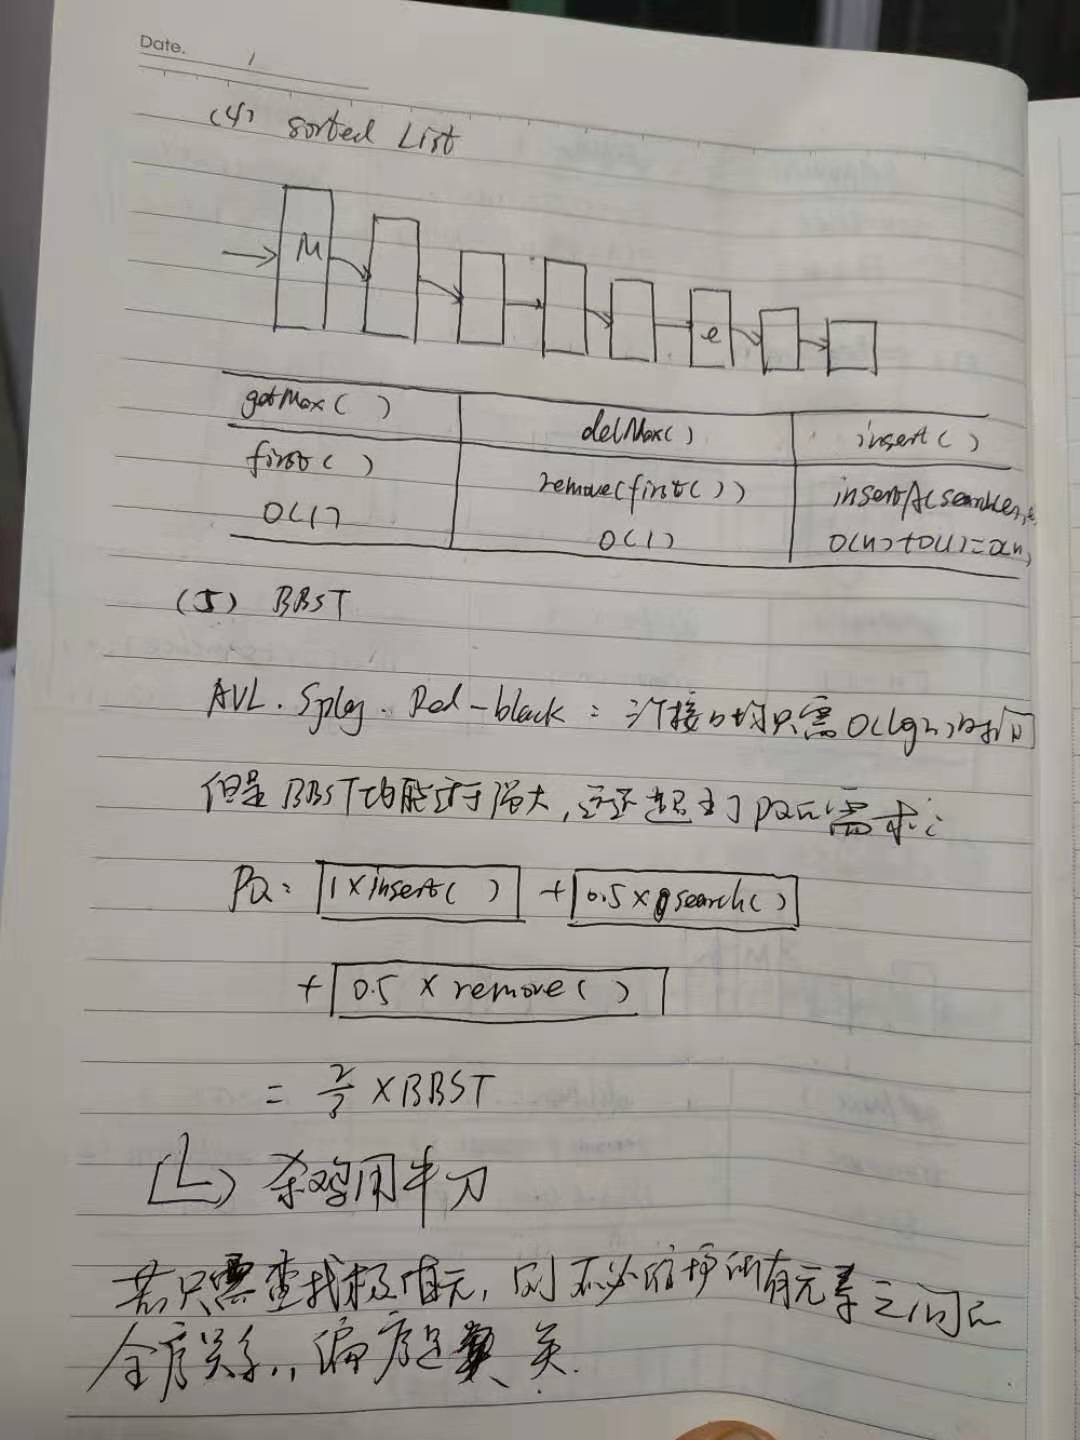 Date. /
(4) Sorted List
M
e
getMax ( )
delMax()
insert ( )
first ( )
remove(first())
insertA(search(e),e
O(1)
O(1)
O(n)+O(1)=O(n)
(5) BBST
AVL. Splay. Red-black: 三个接口均只需O(lgn)时间
但是BBST功能过于强大,远远超出了PQ的需求:
PQ: 1×insert( ) + 0.5×search()
+ 0.5 × remove ( )
= 2/3 ×BBST
杀鸡用牛刀
若只需查找极值元, 则不必维护所有元素之间的
全序关系, 偏序足矣